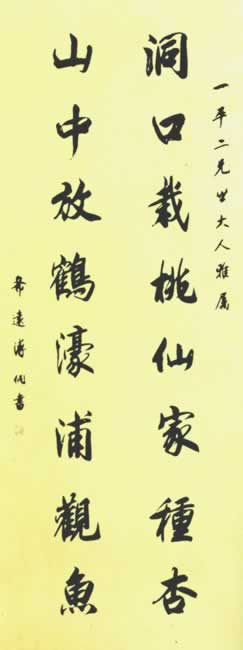 一平二兄世大人雅属
洞口栽桃仙家種杏
山中放鶴濠浦觀魚
希遠溥書